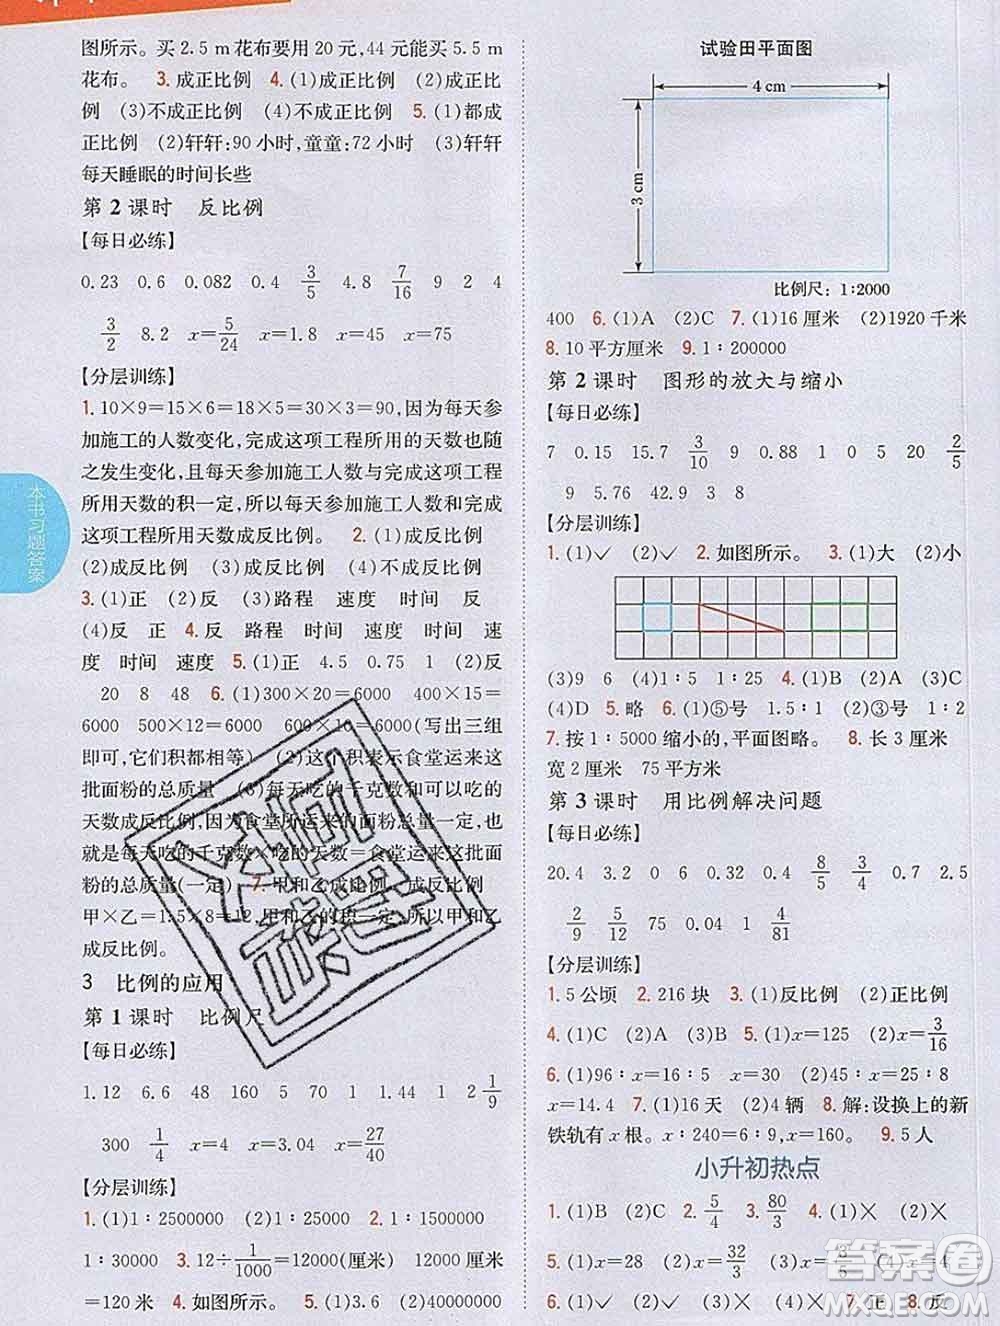 图所示。买 2.5 m 花布要用 20 元,44 元能买 5.5 m
花布。 3. 成正比例 4. (1)成正比例 (2)成正比
例 (3)不成正比例 (4)不成正比例 5. (1)都成
正比例 (2)轩轩:90 小时,童童:72 小时 (3)轩轩
每天睡眠的时间长些
第 2 课时 反比例
【每日必练】
0.23 0.6 0.082 0.4 3/5 4.8 7/16 9 2 4
3/2 8.2 x=5/24 x=1.8 x=45 x=75
【分层训练】
1. 10×9=15×6=18×5=30×3=90,因为每天参
加施工的人数变化,完成这项工程所用的天数也随
之发生变化,且每天参加施工人数与完成这项工程
所用天数的积一定,所以每天参加施工人数和完成
这项工程所用天数成反比例。 2. (1)成反比例
(2)成反比例 (3)成反比例 (4)不成反比例
3. (1)正 (2)反 (3)路程 速度 时间 反
(4)反 正 4. 反 路程 时间 速度 时间 速
度 时间 速度 5. (1)正 4.5 0.75 1 (2)反
20 8 48 6. (1)300×20=6000 400×15=
6000 500×12=6000 600×10=6000(写出三组
即可,它们积都相等) (2)这个积表示食堂运来这
批面粉的总质量 (3)每天吃的千克数和可以吃的
天数成反比例,因为食堂所运来的面粉总量一定,也
就是每天吃的千克数×吃的天数=食堂运来这批面
粉的总质量(一定) 7. 甲和乙成比例,成反比例
甲×乙=1.5×8=12,甲和乙的积一定,所以甲和乙
成反比例。
3 比例的应用
第 1 课时 比例尺
【每日必练】
1.12 6.6 48 160 5 70 1 1.44 2 1/9
300 1/4 x=4 x=3.04 x=27/40
【分层训练】
1. (1)1∶2500000 (2)1∶200 2. 1∶1500000
1∶30000 3. 12÷1/1000=12000(厘米) 12000 厘米
=120 米 4. 如图所示。 5. (1)3.6 (2)40000000
本书习题答案
试验田平面图
4 cm
3 cm
比例尺:1∶2000
400 6. (1)A (2)C 7. (1)16 厘米 (2)1920 千米
8. 10 平方厘米 9. 1∶200000
第 2 课时 图形的放大与缩小
【每日必练】
7 0.15 1.75 3/10 9 0.88 1 0 5 20 2/5
9 5.76 42.9 3 8
【分层训练】
1. (1)✓ (2)✓ 2. 如图所示。 3. (1)大 (2)小
(3)9 6 (4)1∶5 1∶25 4. (1)B (2)A (3)C
(4)D 5. 略 6. (1)⑤号 1.5∶1 (2)③号 1∶2
7. 按 1∶5000 缩小的,平面图略。 8. 长 3 厘米
宽 2 厘米 75 平方米
第 3 课时 用比例解决问题
【每日必练】
20.4 3.2 30 1 0.32 4 8/5 3/4 0.7 2.5
2/9 5/12 75 0.04 1 4/81
【分层训练】
1. 5 公顷 2. 216 块 3. (1)反比例 (2)正比例
4. (1)C (2)A (3)B 5. (1)x=125 (2)x=3/16
6. (1)96∶16∶5 x=30 (2)45∶25∶8
x=14.4 7. (1)16 天 (2)4 辆 8. 解:设换上的新
铁轨有 x 根。x∶240=6∶9,x=160。 9. 5 人
小升初热点
1. (1)B (2)C 2. 5/4 3. 80/3 4. (1)✕ (2)✕
5. (1)x=28 (2)x=32/3 (3)x=3/2 (4)x=4
6. (1)✓ (2)✓ (3)✕ (4)✕ 7. 正 8. 反
答案圈